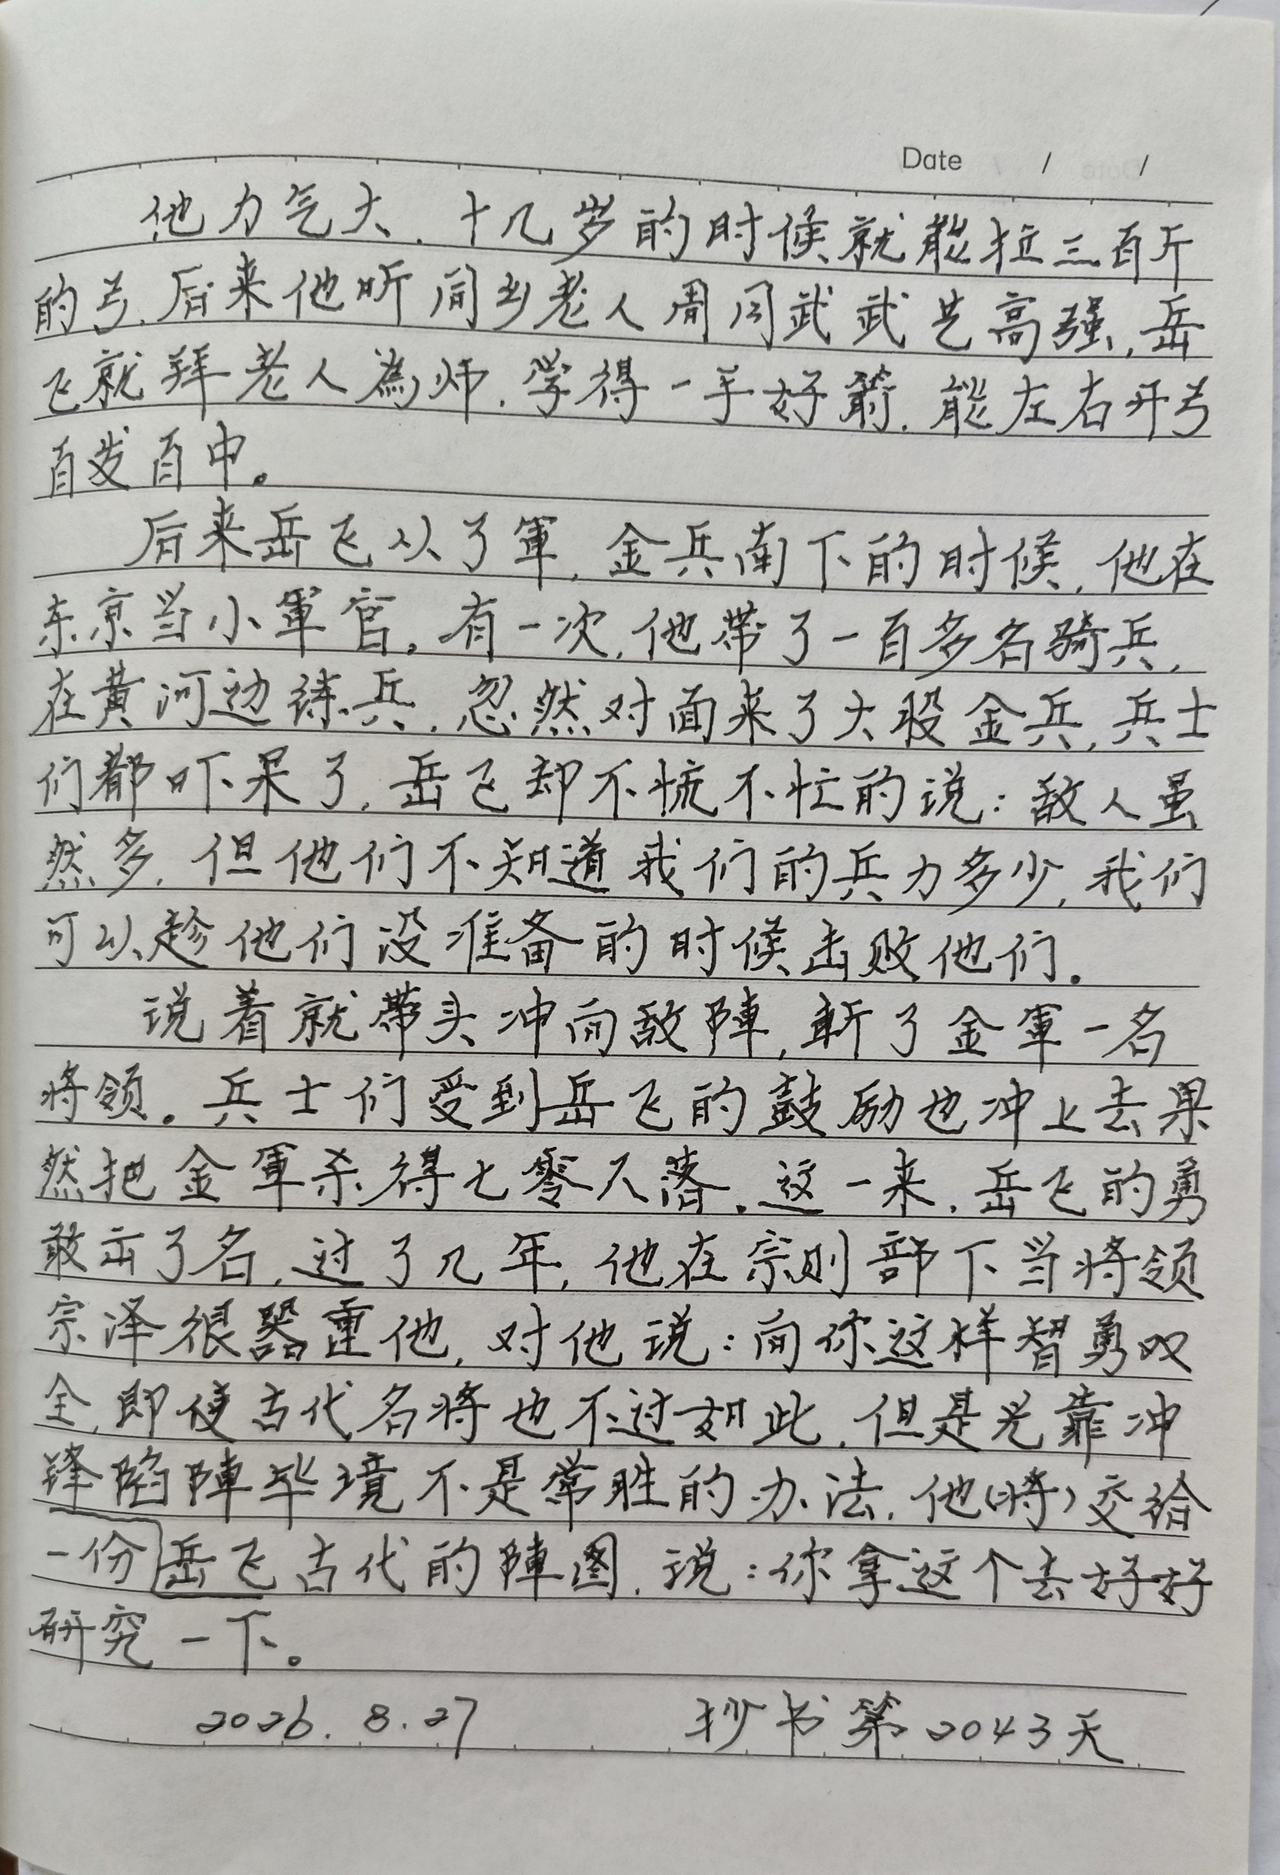 Date / /
他力气大，十几岁的时候就能拉三百斤
的弓，后来他听同乡老人周同武武艺高强，岳
飞就拜老人為师，学得一手好箭，能左右开弓
百发百中。
后来岳飞从了軍，金兵南下的时候，他在
东京当小軍官，有一次，他带了一百多名骑兵，
在黄河边练兵，忽然对面来了大股金兵，兵士
们都吓呆了，岳飞却不慌不忙的说：敌人虽
然多，但他们不知道我们的兵力多少，我们
可以趁他们没准备的时候击败他们。
说着就带头冲向敌陣，斬了金軍一名
将领。兵士们受到岳飞的鼓励也冲上去果
然把金軍杀得七零八落，这一来，岳飞的勇
敢出了名，过了几年，他在宗则部下当将领
宗泽很器重他，对他说：向你这样智勇双
全，即使古代名将也不过如此，但是光靠冲
锋陷陣毕境不是常胜的办法，他(将)交给
一份岳飞古代的陣图，说：你拿这个去好好
研究一下。
2026.8.27 抄书第2043天